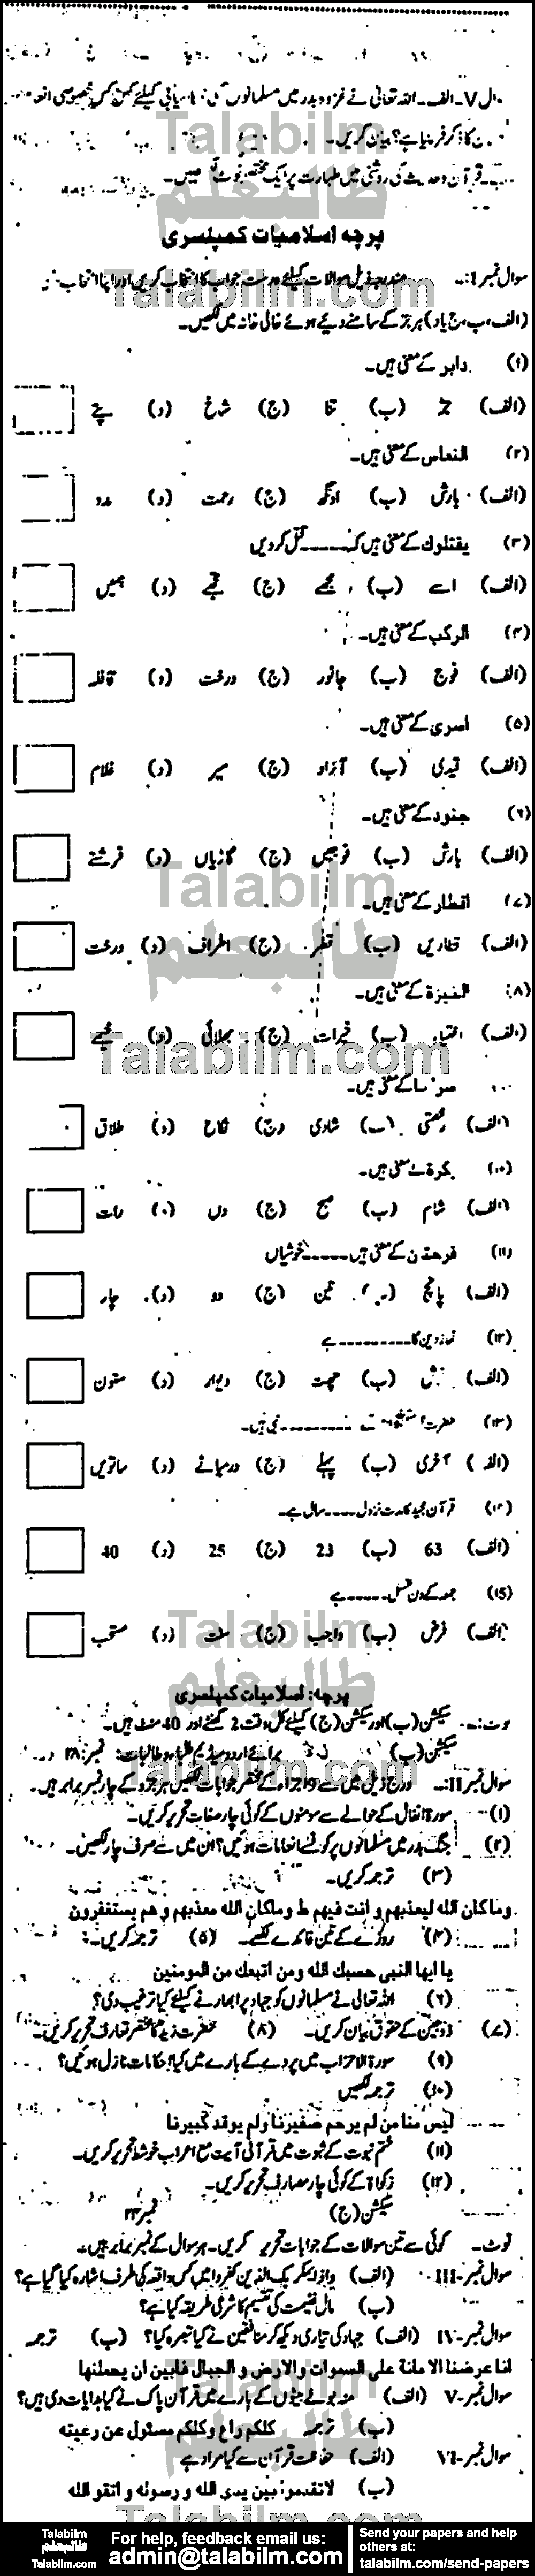 سوال V۔ الف۔ اللہ تعالیٰ نے غزوہ بدر میں مسلمانوں کی کامیابی کیلئے کن کن خصوصی
کا ذکر فرمایا ہے؟ بیان کریں۔
ب۔ قرآن و حدیث کی روشنی میں طہارت پر ایک مختصر نوٹ لکھیں۔
پرچہ اسلامیات کمپلسری
سوال نمبر I:۔ مندرجہ ذیل سوالات کیلئے درست جواب کا انتخاب کریں اور اپنا انتخاب
(الف، ب، ج یا د) ہر جز کے سامنے دیئے ہوئے خالی خانہ میں لکھیں۔
(۱) دابر کے معنی ہیں۔
(الف) جڑ (ب) تنا (ج) شاخ (د) پتے
(۲) النعاس کے معنی ہیں۔
(الف) بارش (ب) اونگھ (ج) رحمت (د) مدد
(۳) یقتلوك کے معنی ہیں کہ ۔۔۔۔۔ قتل کر دیں
(الف) اسے (ب) مجھے (ج) تجھے (د) ہمیں
(۴) الرکب کے معنی ہیں۔
(الف) فوج (ب) جانور (ج) درخت (د) قافلہ
(۵) اسری کے معنی ہیں۔
(الف) قیدی (ب) آزاد (ج) سیر (د) غلام
(۶) جنود کے معنی ہیں۔
(الف) بارش (ب) فوجیں (ج) گاڑیاں (د) فرشتے
(۷) اقطار کے معنی ہیں۔
(الف) قطاریں (ب) قطر (ج) اطراف (د) درخت
(۸) الخیرۃ کے معنی ہیں۔
(الف) اختیار (ب) خیرات (ج) بھلائی (د) خیمے
کے معنی ہیں۔
(الف) رخصتی (ب) شادی (ج) نکاح (د) طلاق
(۱۰) بکرۃ کے معنی ہیں۔
(الف) شام (ب) صبح (ج) دن (د) رات
(۱۱) فرحتان کے معنی ہیں ۔۔۔۔۔ خوشیاں
(الف) پانچ (ب) تین (ج) دو (د) چار
(۱۲) نماز دین کا ۔۔۔۔۔۔۔ ہے
(الف) (ب) چھت (ج) دیوار (د) ستون
(۱۳) حضرت ۔۔۔۔۔۔۔ نبی ہیں۔
(الف) آخری (ب) پہلے (ج) درمیانے (د) ساتویں
(۱۴) قرآن مجید کا مدت نزول ۔۔۔۔ سال ہے۔
(الف) 63 (ب) 23 (ج) 25 (د) 40
(15) جمعہ کے دن غسل ۔۔۔۔۔ ہے
(الف) فرض (ب) واجب (ج) سنت (د) مستحب
پرچہ: اسلامیات کمپلسری
نوٹ:۔ سیکشن (ب) اور سیکشن (ج) کیلئے کل وقت 2 گھنٹے اور 40 منٹ ہیں۔
سیکشن (ب) برائے اردو میڈیم طلباء و طالبات: نمبر: ۲۸
سوال نمبر II:۔ درج ذیل میں سے 9 اجزاء کے مختصر جوابات لکھیں ہر جزو کے چار نمبر برابر ہیں۔
(۱) سورۃ انفال کے حوالے سے مومنوں کے کوئی چار صفات تحریر کریں۔
(۲) جنگ بدر میں مسلمانوں پر کونسے انعامات ہوئیں؟ ان میں سے صرف چار لکھیں۔
(۳) ترجمہ کریں۔
وماکان الله لیعذبهم و انت فیهم ط وماکان الله معذبهم و هم یستغفرون
(۴) روزے کے تین فائدے لکھیے۔ (۵) ترجمہ کریں۔
یا ایها النبی حسبك الله ومن اتبعك من المومنین
(۶) اللہ تعالیٰ نے مسلمانوں کو جہاد پر ابھارنے کیلئے کیا ترغیب دی؟
(۷) زوجین کے حقوق بیان کریں۔ (۸) حضرت زیدؓ کا مختصر تعارف تحریر کریں۔
(۹) سورۃ الاحزاب میں پردے کے بارے میں کیا احکامات نازل ہوئیں؟
(۱۰) ترجمہ لکھیں
لیس منا من لم یرحم صغیرنا ولم یوقد کبیرنا
(۱۱) ختم نبوت کے ثبوت میں قرآنی آیت مع اعراب خوشخط تحریر کریں۔
(۱۲) زکواۃ کے کوئی چار مصارف تحریر کریں۔
سیکشن (ج) نمبر ۲۴
نوٹ۔ کوئی سے تین سوالات کے جوابات تحریر کریں۔ ہر سوال کے نمبر برابر ہیں۔
سوال نمبر-III (الف) واذ یمکر بک الذین کفروا میں کس واقعہ کی طرف اشارہ کیا گیا ہے؟
(ب) مال غنیمت کی تقسیم کا شرعی طریقہ کیا ہے؟
سوال نمبر-IV (الف) جہاد کی تیاری دیکھ کر منافقین نے کیا تبصرہ کیا؟ (ب) ترجمہ
انا عرضنا الامانة علی السموات والارض و الجبال فابین ان یحملنها
سوال نمبر-V (الف) منہ بولے بیٹوں کے بارے میں قرآن پاک نے کیا ہدایات دی ہیں؟
(ب) ترجمہ کلکم راع وکلکم مسئول عن رعیته
سوال نمبر-VI (الف) حفاظت قرآن سے کیا مراد ہے
(ب) لاتقدموا بین یدی الله و رسوله و اتقو الله
Talabilm
طالبعلم
Talabilm.com
For help, feedback email us:
admin@talabilm.com
Send your papers and help
others at:
talabilm.com/send-papers